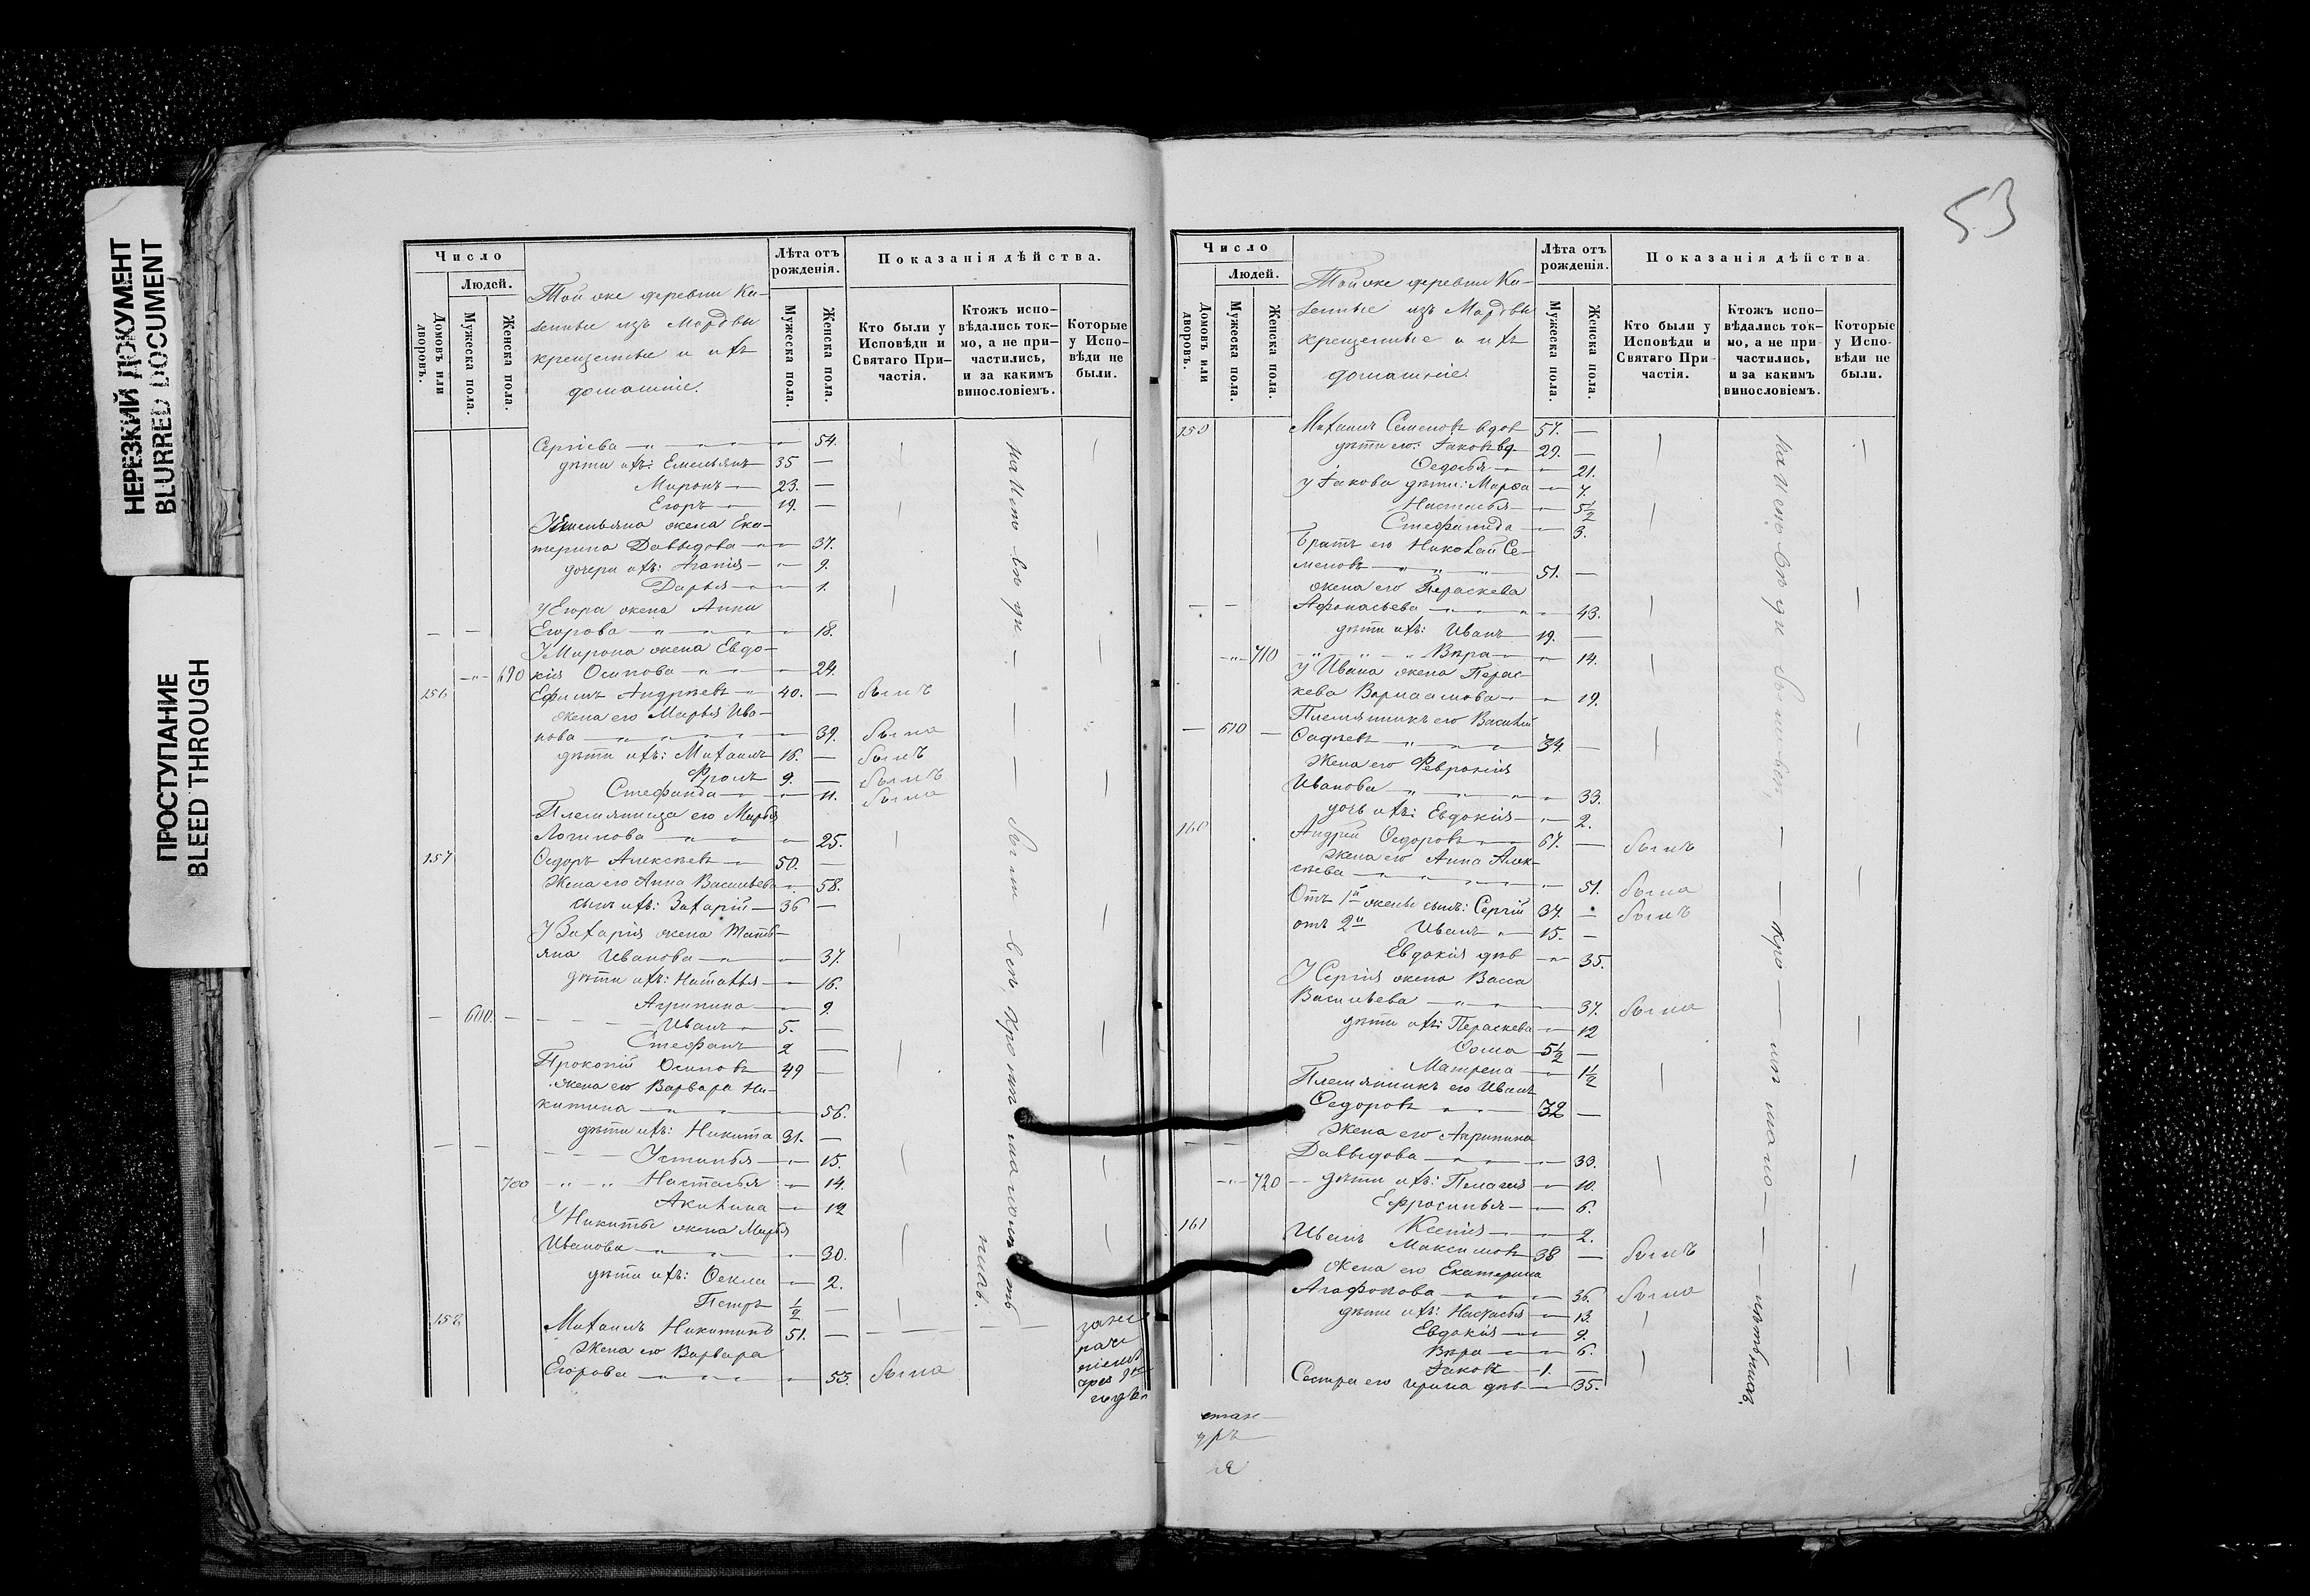 НЕРЕЗКИЙ ДОКУМЕНТ
BLURRED DOCUMENT
ПРОСТУПАНИЕ
BLEED THROUGH
Число
Людей.
Домовъ или дворовъ.
Мужеска пола.
Женска пола.
Той же деревни Ка-
зенные изъ Мордвы
крещенные и ихъ
домашніе.
Лѣта отъ рожденія.
Мужеска пола.
Женска пола.
Показанія дѣйства.
Кто были у Исповѣди и Святаго При-частія.
Ктожъ испо-вѣдались ток-мо, а не при-частились, и за какимъ винословіемъ.
Которые у Испо-вѣди не были.
Сергіева 54.
дѣти ихъ: Емельянъ 35
Миронъ 23.
Егоръ 19.
У Емельяна жена Ека-
терина Давыдова 37.
дочери ихъ: Агапія 9.
Дарья 1.
У Егора жена Анна
Егорова 18.
У Мирона жена Евдо-
690 кія Осипова 24.
156 Ефимъ Андреевъ 40. былъ
жена его Марья Ива-
нова 39. была
дѣти ихъ: Михаилъ 16. былъ
Фролъ 9. былъ
Стефанида 11. была
Племянница его Марья
Логинова 25.
157 Ѳедоръ Алексѣевъ 50.
Жена его Анна Васильева 58.
сынъ ихъ: Захарій 36
У Захарія жена Татья-
яна Иванова 37.
дѣти ихъ: Наталья 16.
Агрипина 9.
600. Иванъ 5.
Стефанъ 2
Прокопій Осиповъ 49
жена его Варвара Ни-
китина 56.
дѣти ихъ: Никита 31.
Устинья 15.
700 Настасья 14.
Акилина 12
У Никиты жена Марья
Иванова 30.
дѣти ихъ: Ѳекла 2.
Петръ 1/2
158 Михаилъ Никитинъ 51.
Жена его Варвара
Егорова 53. была
53
Число
Людей.
Домовъ или дворовъ.
Мужеска пола.
Женска пола.
Той же деревни Ка-
зенные изъ Мордвы
крещенные и ихъ
домашніе.
Лѣта отъ рожденія.
Мужеска пола.
Женска пола.
Показанія дѣйства.
Кто были у Исповѣди и Святаго При-частія.
Ктожъ испо-вѣдались ток-мо, а не при-частились, и за какимъ винословіемъ.
Которые у Испо-вѣди не были.
159 Михаилъ Семеновъ вдов 57.
дѣти его: Іаковъ вд 29.
Ѳедосья 21.
у Іакова дѣти: Марѳа 7.
Настасья 5 1/2
Стефанида 3.
Братъ его Николай Се-
меновъ 51.
жена его Параскева
Афонасьева 43.
дѣти ихъ: Иванъ 19.
710 Вѣра 14.
У Ивана жена Парас-
кева Варлаамова 19.
Племянникъ его Василій
610 Ѳадѣевъ 34.
Жена его Февронія
Иванова 33.
дочь ихъ: Евдокія 2.
160 Андрей Ѳедоровъ 67. былъ
Жена его Анна Алек-
сѣева 51. была
Отъ 1й жены сынъ: Сергій 37. былъ
отъ 2й Иванъ 15.
Евдокія дѣв 35.
У Сергія жена Васса
Васильева 37. была
дѣти ихъ: Параскева 12
Ѳома 5 1/2
Матрена 1 1/2
Племянникъ его Иванъ
Ѳедоровъ 32
Жена его Агрипина
Давыдова 33.
720 дѣти ихъ: Пелагея 10.
Ефросинья 6.
Ксенія 2.
161 Иванъ Максимовъ 38 былъ
жена его Екатерина
Агафонова 36. была
дѣти ихъ: Настасья 13.
Евдокія 9.
Вѣра 6.
Іаковъ 1.
Сестра его Ирина дѣв 35.